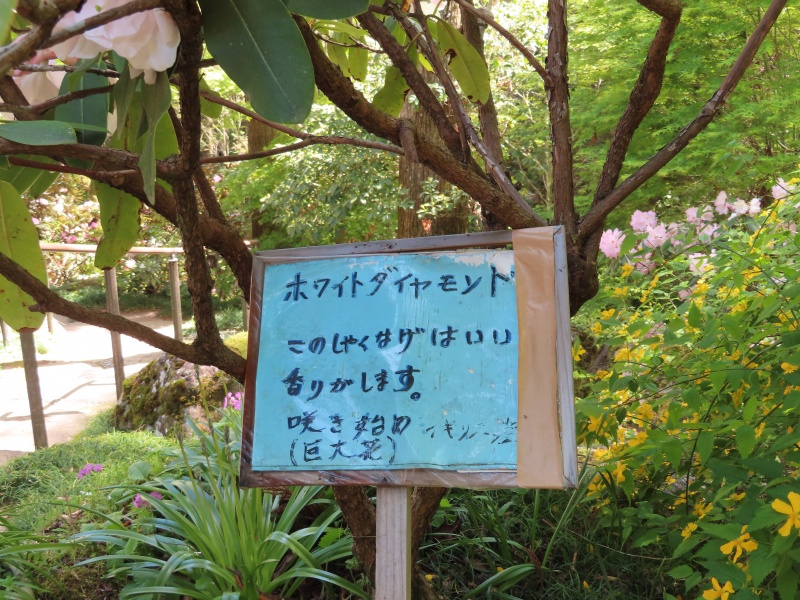 ホワイトダイヤモンド
このしゃくなげはいい
香りがします。
咲き始め イギリス
(巨大花)